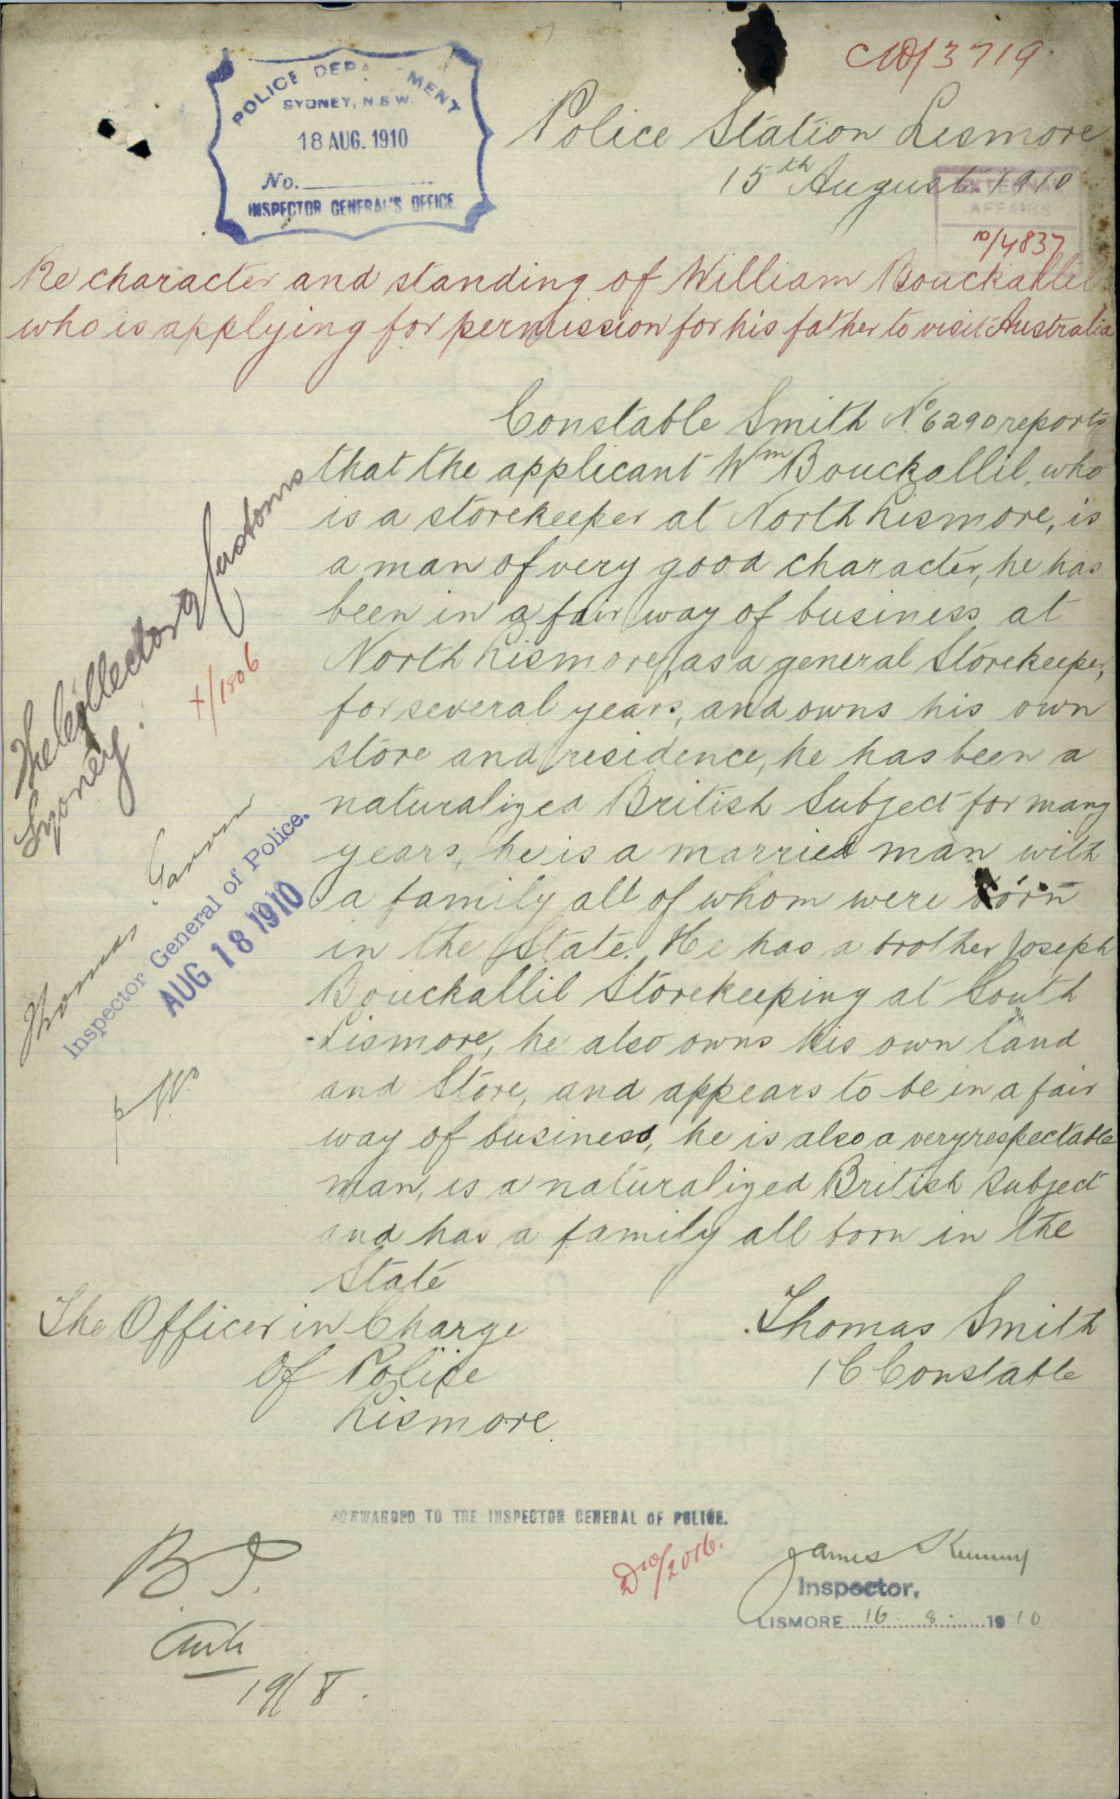 C10/3719
POLICE DEPARTMENT
SYDNEY, N.S.W.
18 AUG. 1910
No.
INSPECTOR GENERAL'S OFFICE
Police Station Lismore
15th August 1910
EXTERNAL
AFFAIRS
10/4837
Re character and standing of William Bouckallil
who is applying for permission for his father to visit Australia
Constable Smith No. 6290 reports
that the applicant Wm Bouckallil, who
is a storekeeper at North Lismore, is
a man of very good character, he has
been in a fair way of business at
North Lismore, as a general Storekeeper,
for several years, and owns his own
store and residence, he has been a
naturalized British Subject for many
years, he is a married man with
a family all of whom were born
in the State. He has a brother Joseph
Bouckallil Storekeeping at South
Lismore, he also owns his own land
and Store, and appears to be in a fair
way of business, he is also a very respectable
man, is a naturalized British subject
and has a family all born in the
State
The Collector of Customs
Sydney.
+/1806
Thomas Garvin
Inspector General of Police.
AUG 18 1910
The Officer in Charge
of Police
Lismore.
Thomas Smith
1C Constable
FORWARDED TO THE INSPECTOR GENERAL OF POLICE.
D10/2016.
James
Inspector.
LISMORE 16. 8. 1910
19/8.